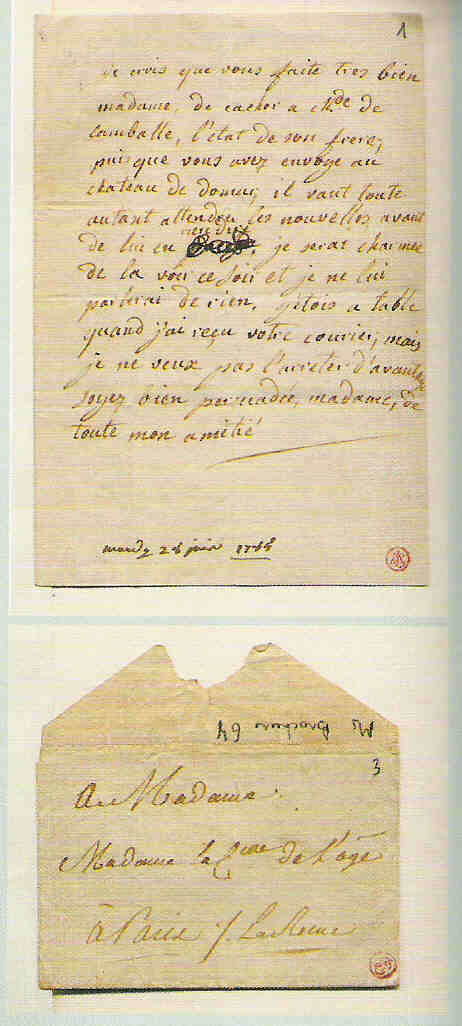 1
je crois que vous faite tres bien
madame, de cacher a Mde de
Lamballe, l'état de son frere,
puisque vous avez envoye au
chateau de il vaut toute
autant attendre les nouvelles avant
de lui en rien dire, je serai charmée
de la voir ce soir et je ne lui
parlerai de rien. j'etois a table
quand j'ai reçu votre courier, mais
je ne veux pas l'arreter d'avantage
soyez bien persuadée, madame, de
toute mon amitié
mardy juin
Mr 64
3
A Madame
Madame la de L'age
à Paris / La Reine